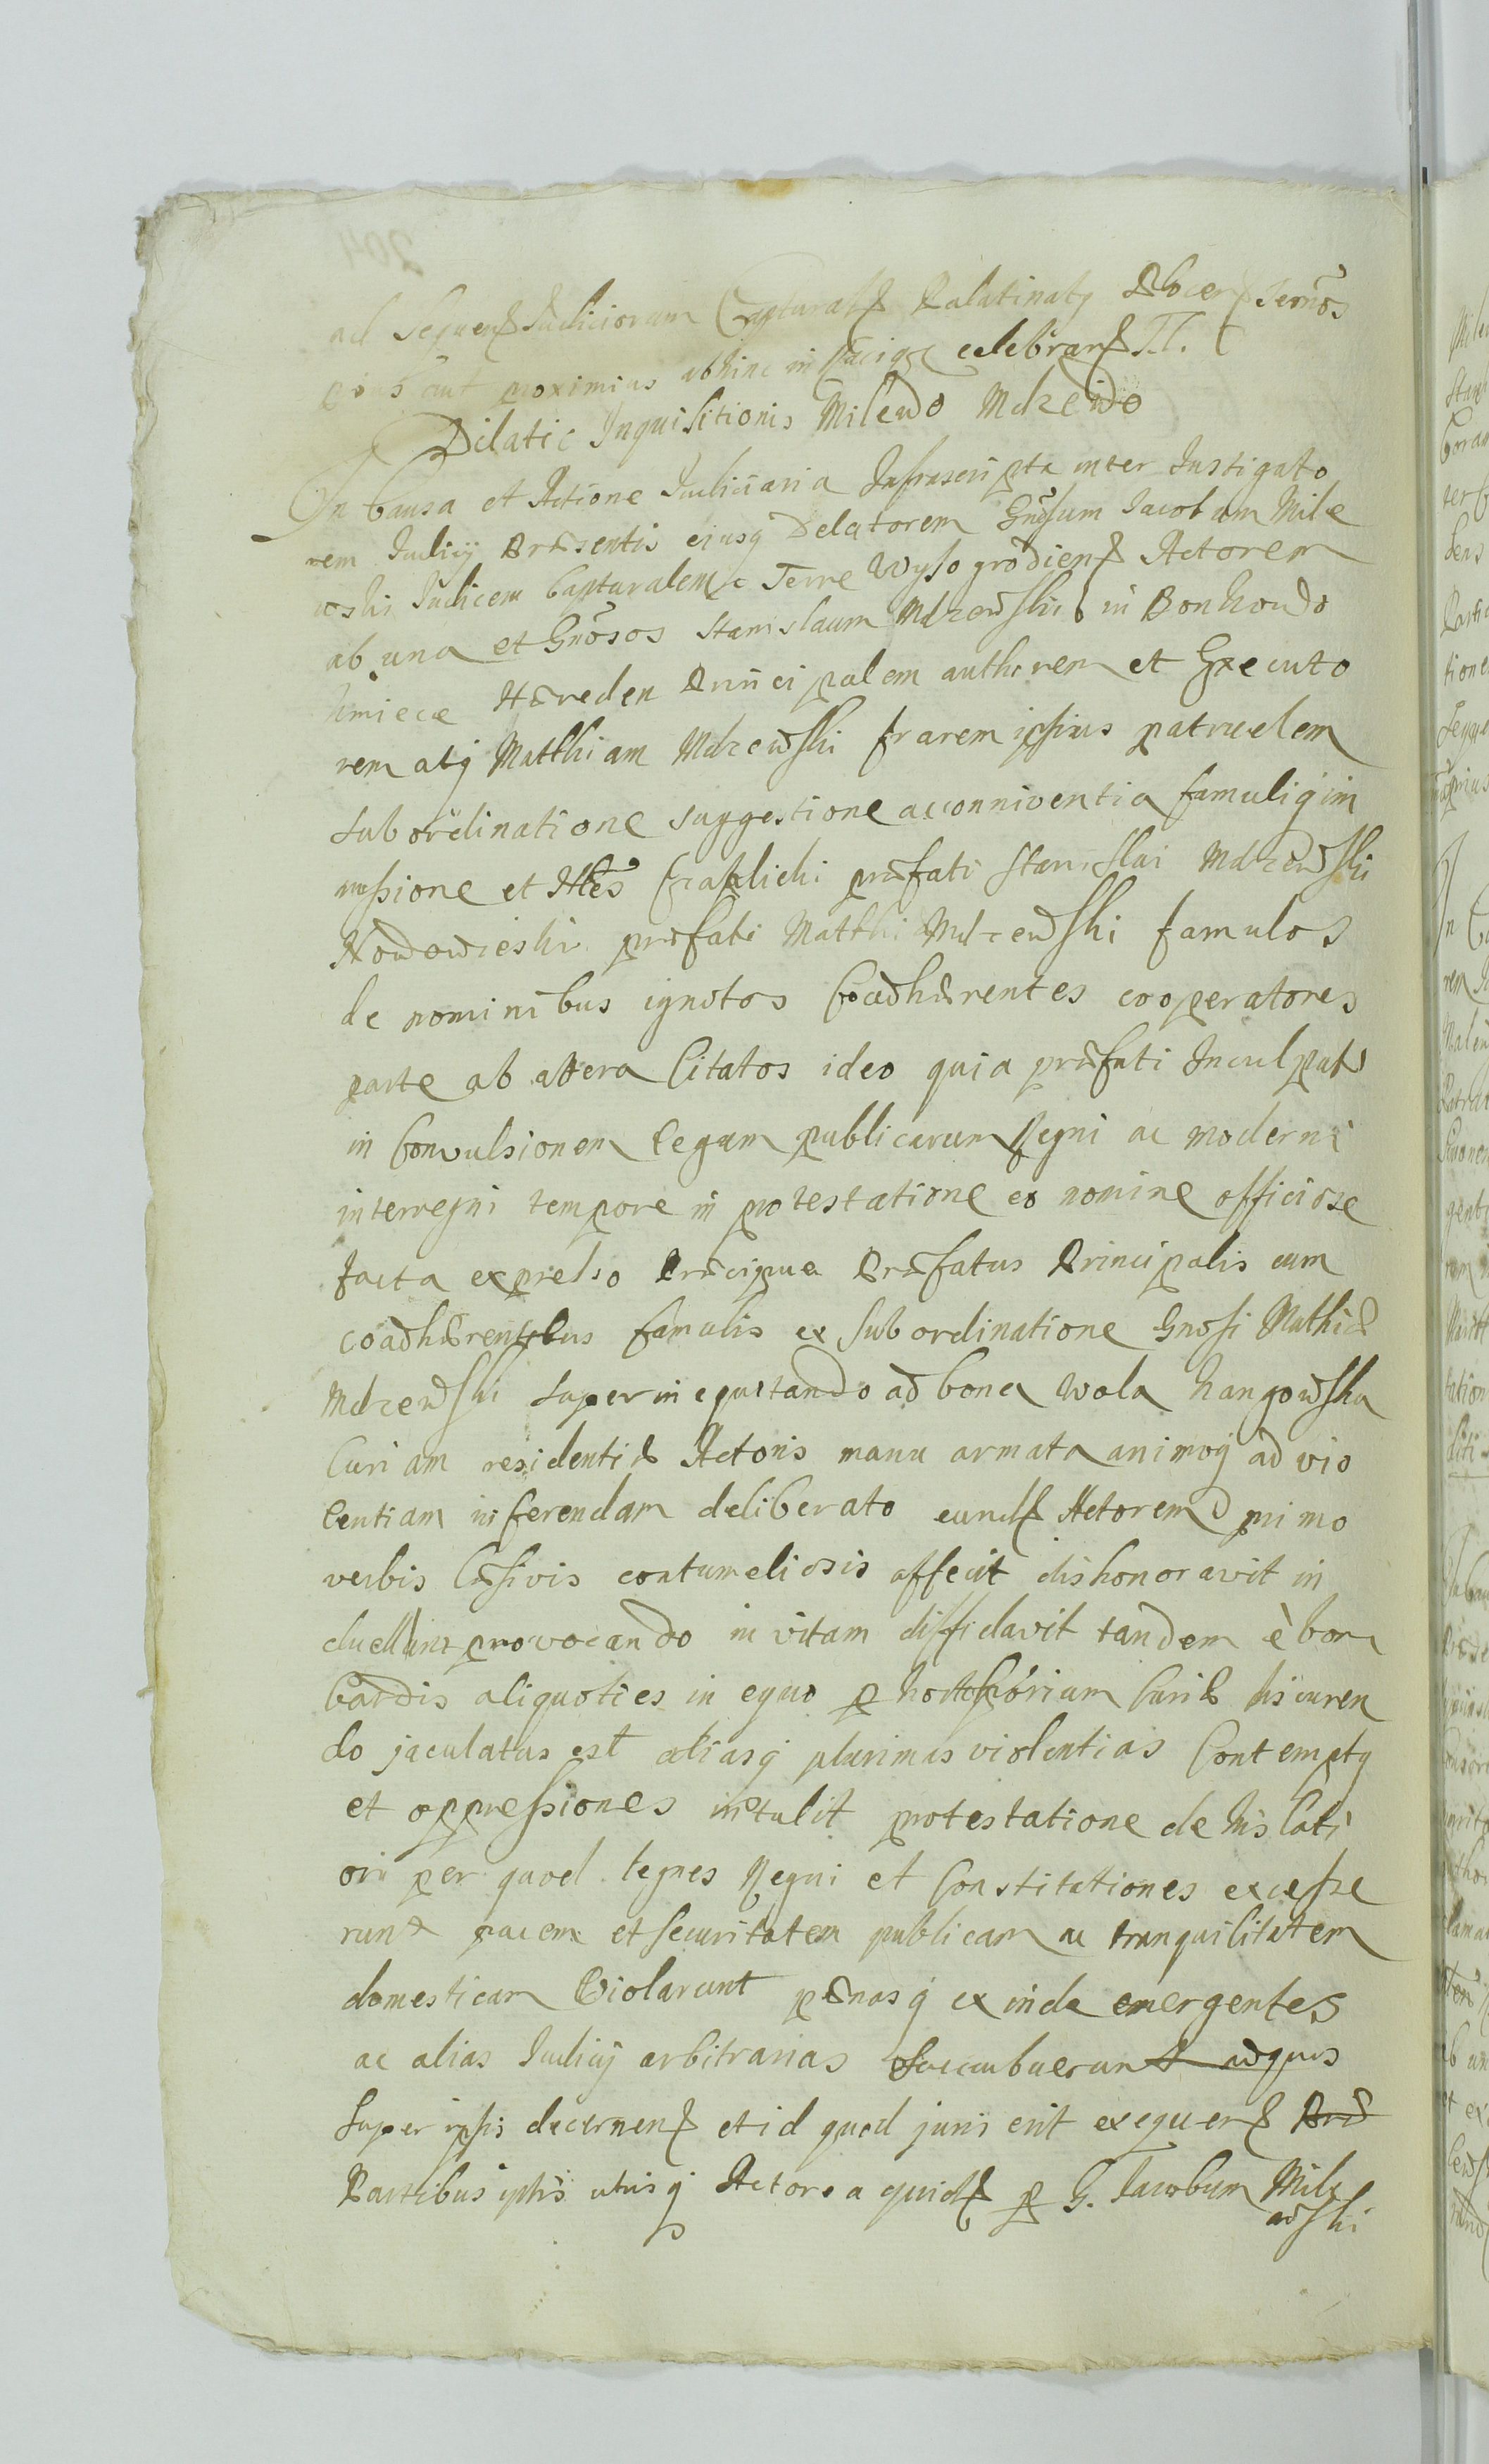 ad sequen Judiciorum Captural Palatinatq Plocen Termos
aut proximius abhinc in celebran T.T.
Dilatio Inquisitionis Milewo Mdzewo
In Causa et Actione Judiciaria Infrascripta inter Instigato
rem Judicij Præsentis ejusq Delatorem Gnosum Jacobum Mile
wski Judicem Capturalem Terre Wysogrodien Actorem
ab una et Gnosos Stanislaum Mdzewski in Bonkowo
Hæredem Principalem authorem et Executo
rem atq Matthiam Mdzewski frarem ipsius patruelem
subordinatione suggestione acconniventia famuliq im
missione et Nles Czaplicki præfati Stanislai Mdzewski
Nowowieski præfati Matthi Mdzewski famulos
de nominibus ignotos Coadhærentes cooperatores
parte ab altera Citatos ideo quia præfati Inculpati
in Convulsionem Legum publicarum Regni ac moderni
interregni tempore in protestatione eo nomine officiose
facta expresso Præcipue Præfatus Principalis cum
coadhærentibus famulis ex subordinatione Gnosi Mathiæ
Mdzewski superinequitando ad bona Wola Kangowska
Curiam residentiæ Actoris manu armata animoq ad vio
lentiam inferendam deliberato eund Actorem primo
verbis læsivis contumeliosis affecit dishonoravit in
duellum provocando in vitam diffidavit tandem è bom
bardis aliquoties in equo p Curiæ discuren
do jaculatus est aliasq plurimas violentias Contemptq
et oppressiones intulit protestatione de his lati
ori per quod legnes Regni et Constitationes excesse
runt pacem et securitatem publicam ac tranquilitatem
domesticam Violarunt pænasq exinde emergentes
ac alias Judicij arbitrarias succubuerunt adquas
super ipsis decernen et id quod juris erit exequen Præ
Partibus iptis utrisq Actorea quid p G. Jacobum Mile
wski